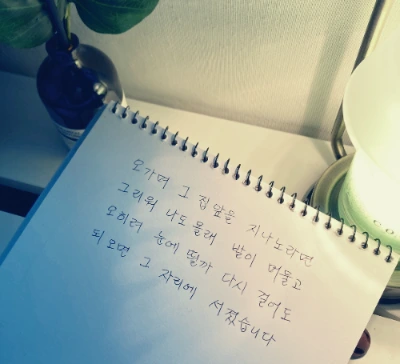 오가며 그 집앞을 지나노라면
그리워 나도 몰래 발이 머물고
오히려 눈에 띌까 다시 걸어도
되오면 그 자리에 서졌습니다